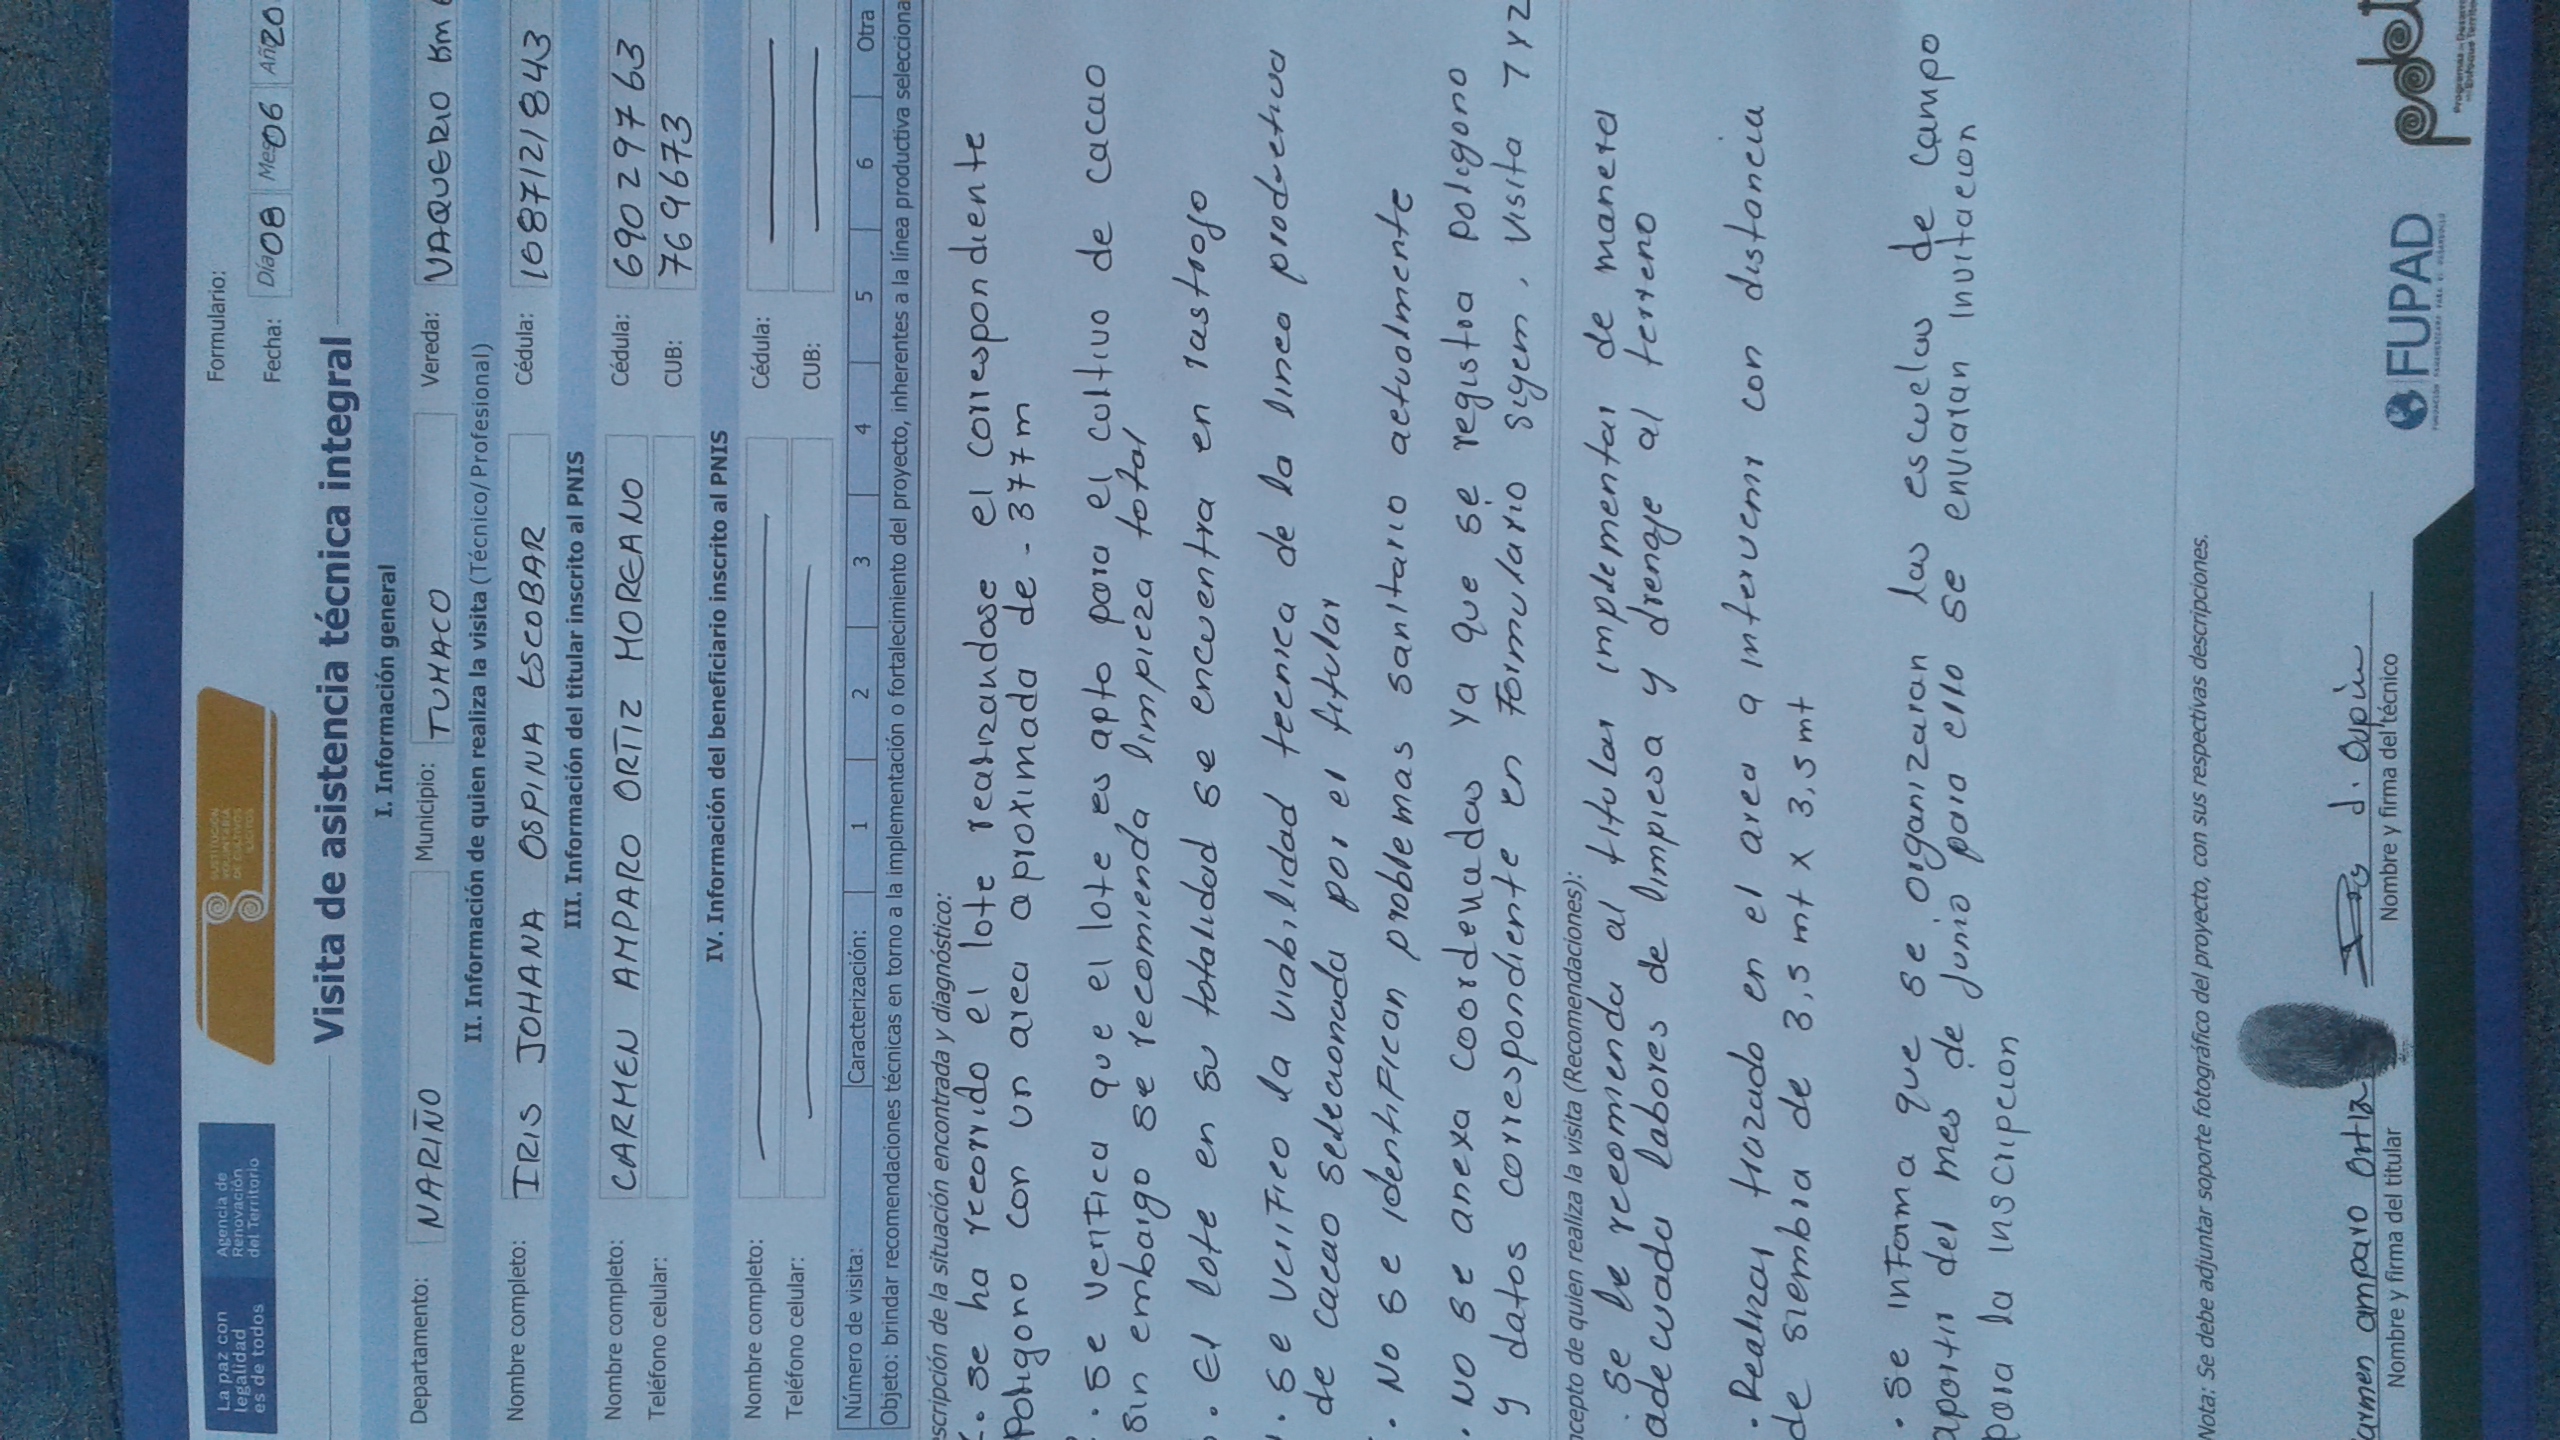 La paz con
legalidad
es de todos
Agencia de
Renovación
del Territorio
SUSTITUCIÓN
VOLUNTARIA
DE CULTIVOS
ILÍCITOS
Formulario:
Fecha: Día 08 Mes 06 Año 20
Visita de asistencia técnica integral
I. Información general
Departamento: NARIÑO Municipio: TUMACO Vereda: VAQUERIO Km
II. Información de quien realiza la visita (Técnico/ Profesional)
Nombre completo: IRIS JOHANA OSPINA ESCOBAR Cédula: 1087121843
III. Información del titular inscrito al PNIS
Nombre completo: CARMEN AMPARO ORTIZ MOREANO Cédula: 69029763
Teléfono celular: CUB: 769673
IV. Información del beneficiario inscrito al PNIS
Nombre completo: Cédula:
Teléfono celular: CUB:
Número de visita: Caracterización: 1 2 3 4 5 6 Otra
Objeto: brindar recomendaciones técnicas en torno a la implementación o fortalecimiento del proyecto, inherentes a la línea productiva selecciona
scripción de la situación encontrada y diagnóstico:
· se ha recorrido el lote realizandose el correspondiente
Poligono con un area aproximada de - 377m
· se verifica que el lote es apto para el cultivo de cacao
sin embargo se recomienda limpieza total
· El lote en su totalidad se encuentra en rastrojo
· se verifico la viabilidad tecnica de la linea productiva
de cacao seleccionada por el titular
· No se identifican problemas sanitario actualmente
· No se anexa coordenadas ya que se registra poligono
y datos correspondiente en formulario sigem, visita 1 y 2
ncepto de quien realiza la visita (Recomendaciones):
· se le recomienda al titular implementar de manera
adecuada labores de limpiesa y drenaje al terreno
· Realizar trazado en el area a intervenir con distancia
de siembra de 3,5 mt x 3,5 mt
· se informa que se organizaran las escuelas de campo
apartir del mes de junio para ello se enviaran invitacion
para la inscripcion
Nota: Se debe adjuntar soporte fotográfico del proyecto, con sus respectivas descripciones.
armen amparo Ortiz
Nombre y firma del titular
Nombre y firma del técnico
FUPAD
pdet